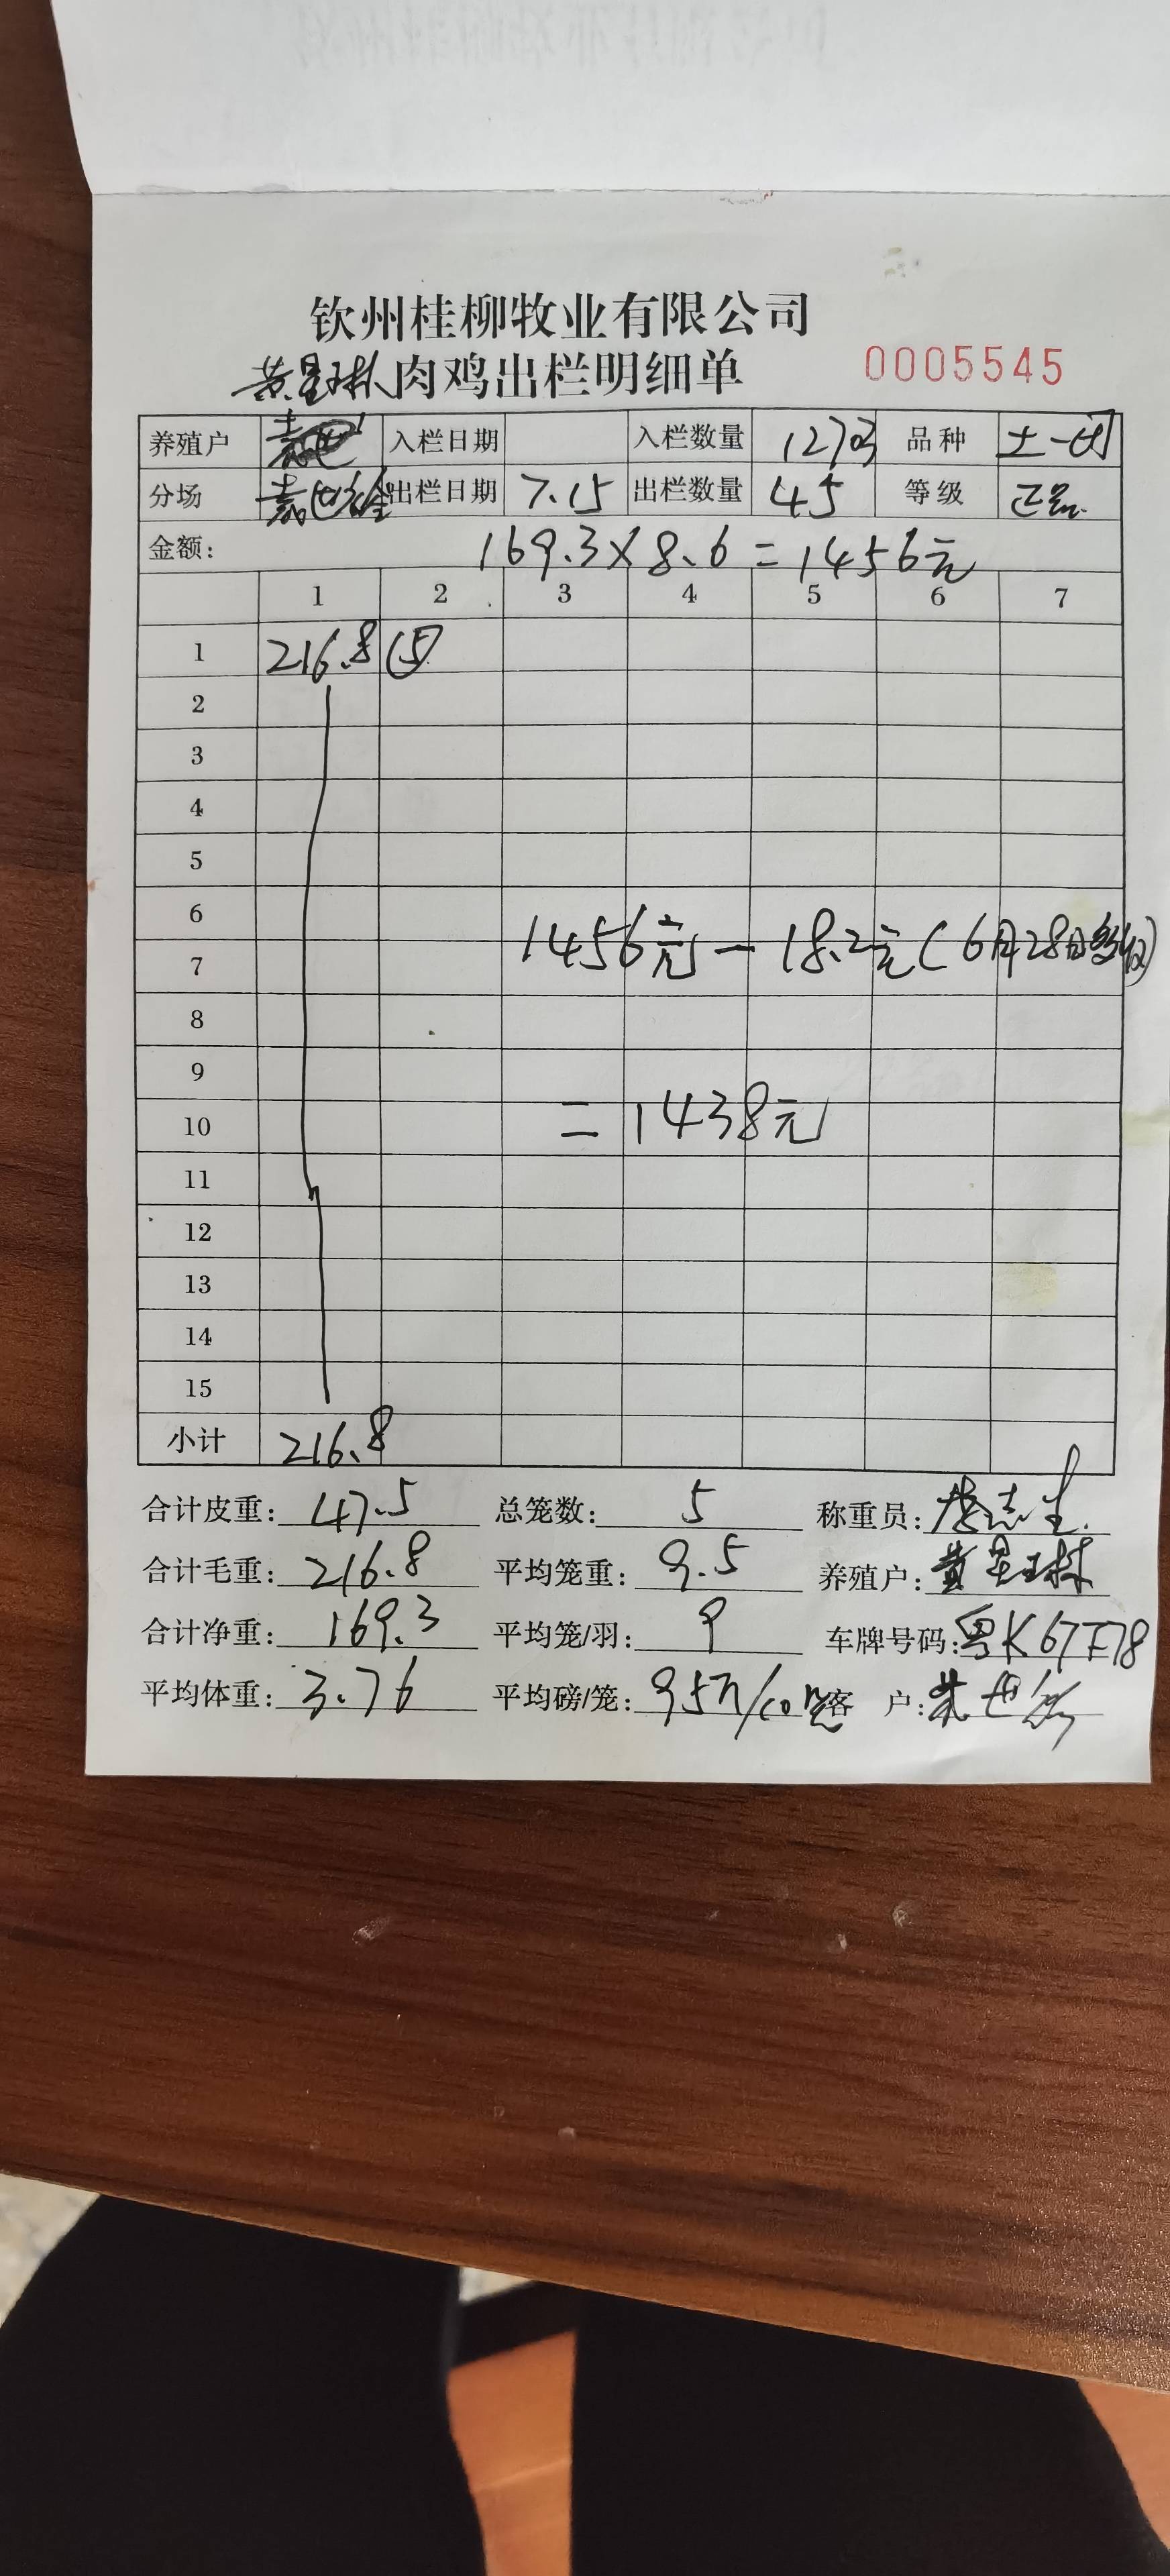 钦州桂柳牧业有限公司
黄星林肉鸡出栏明细单 0005545
养殖户 入栏日期 入栏数量 品种 土一
分场 出栏日期 7.15 出栏数量 45 等级 正品
金额: 169.3×8.6=1456元
1 2 3 4 5 6 7
1 216.8 ⑤
2
3
4
5
6
1456元-18.2元(6月28日多收)
7
8
9
10 =1438元
11
12
13
14
15
小计 216.8
合计皮重: 47.5 总笼数: 5 称重员:
合计毛重: 216.8 平均笼重: 9.5 养殖户: 黄星林
合计净重: 169.3 平均笼/羽: 9 车牌号码: 粤K67F78
平均体重: 3.76 平均磅/笼: 客 户: